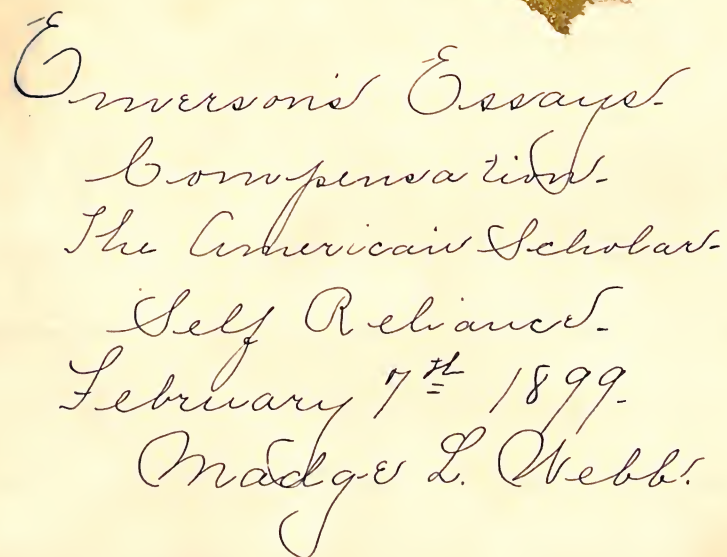 Emerson's Essays-
Compensation-
The American Scholar-
Self Reliance-
February 7th 1899-
Madge L. Webb.